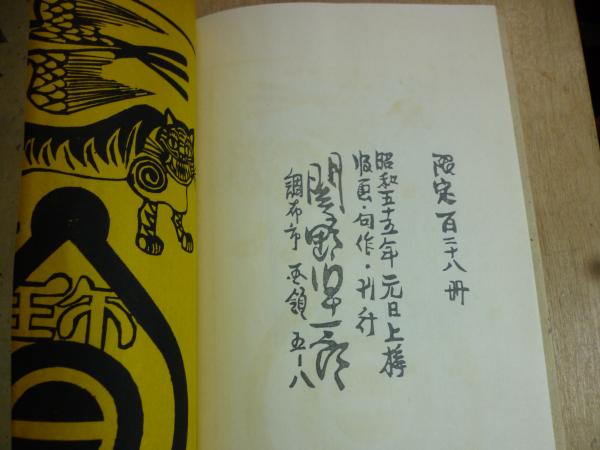 限定百二十八冊
昭和五十五年元日上梓
版画・句作・刊行
関野凖一郎
調布市 五ー八